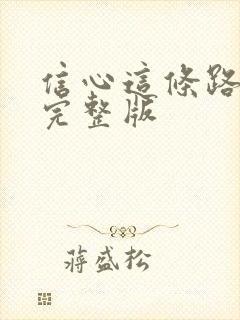 信心這條路
完整版
蔣盛松